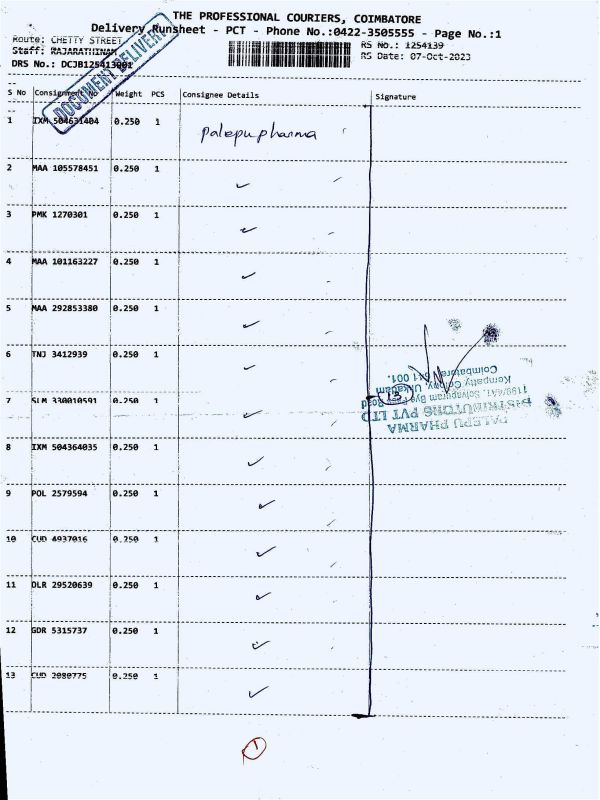 THE PROFESSIONAL COURIERS, COIMBATORE
Delivery Runsheet - PCT - Phone No.:0422-3505555 - Page No.:1
Route: CHETTY STREET
RS No.: 1254139
Staff: RAJARATHINAM
RS Date: 07-Oct-2023
DRS No.: DCJB125413901
DOCUMENT DELIVERY
S No Consignment No Weight PCS Consignee Details Signature
1 IXM 504631404 0.250 1 palepu pharma
2 MAA 105578451 0.250 1
3 PMK 1270301 0.250 1
4 MAA 101163227 0.250 1
5 MAA 292853380 0.250 1
6 TNJ 3412939 0.250 1
7 SLM 330010591 0.250 1
8 IXM 504364035 0.250 1
9 POL 2579594 0.250 1
10 CUD 4937016 0.250 1
11 DLR 29520639 0.250 1
12 GDR 5315737 0.250 1
13 CUD 2080775 0.250 1
PALEPU PHARMA
DISTRIBUTORS PVT LTD
Bye Pass Road
Kempatty Colony, Ukkadam
Coimbatore 641 001.
13
1